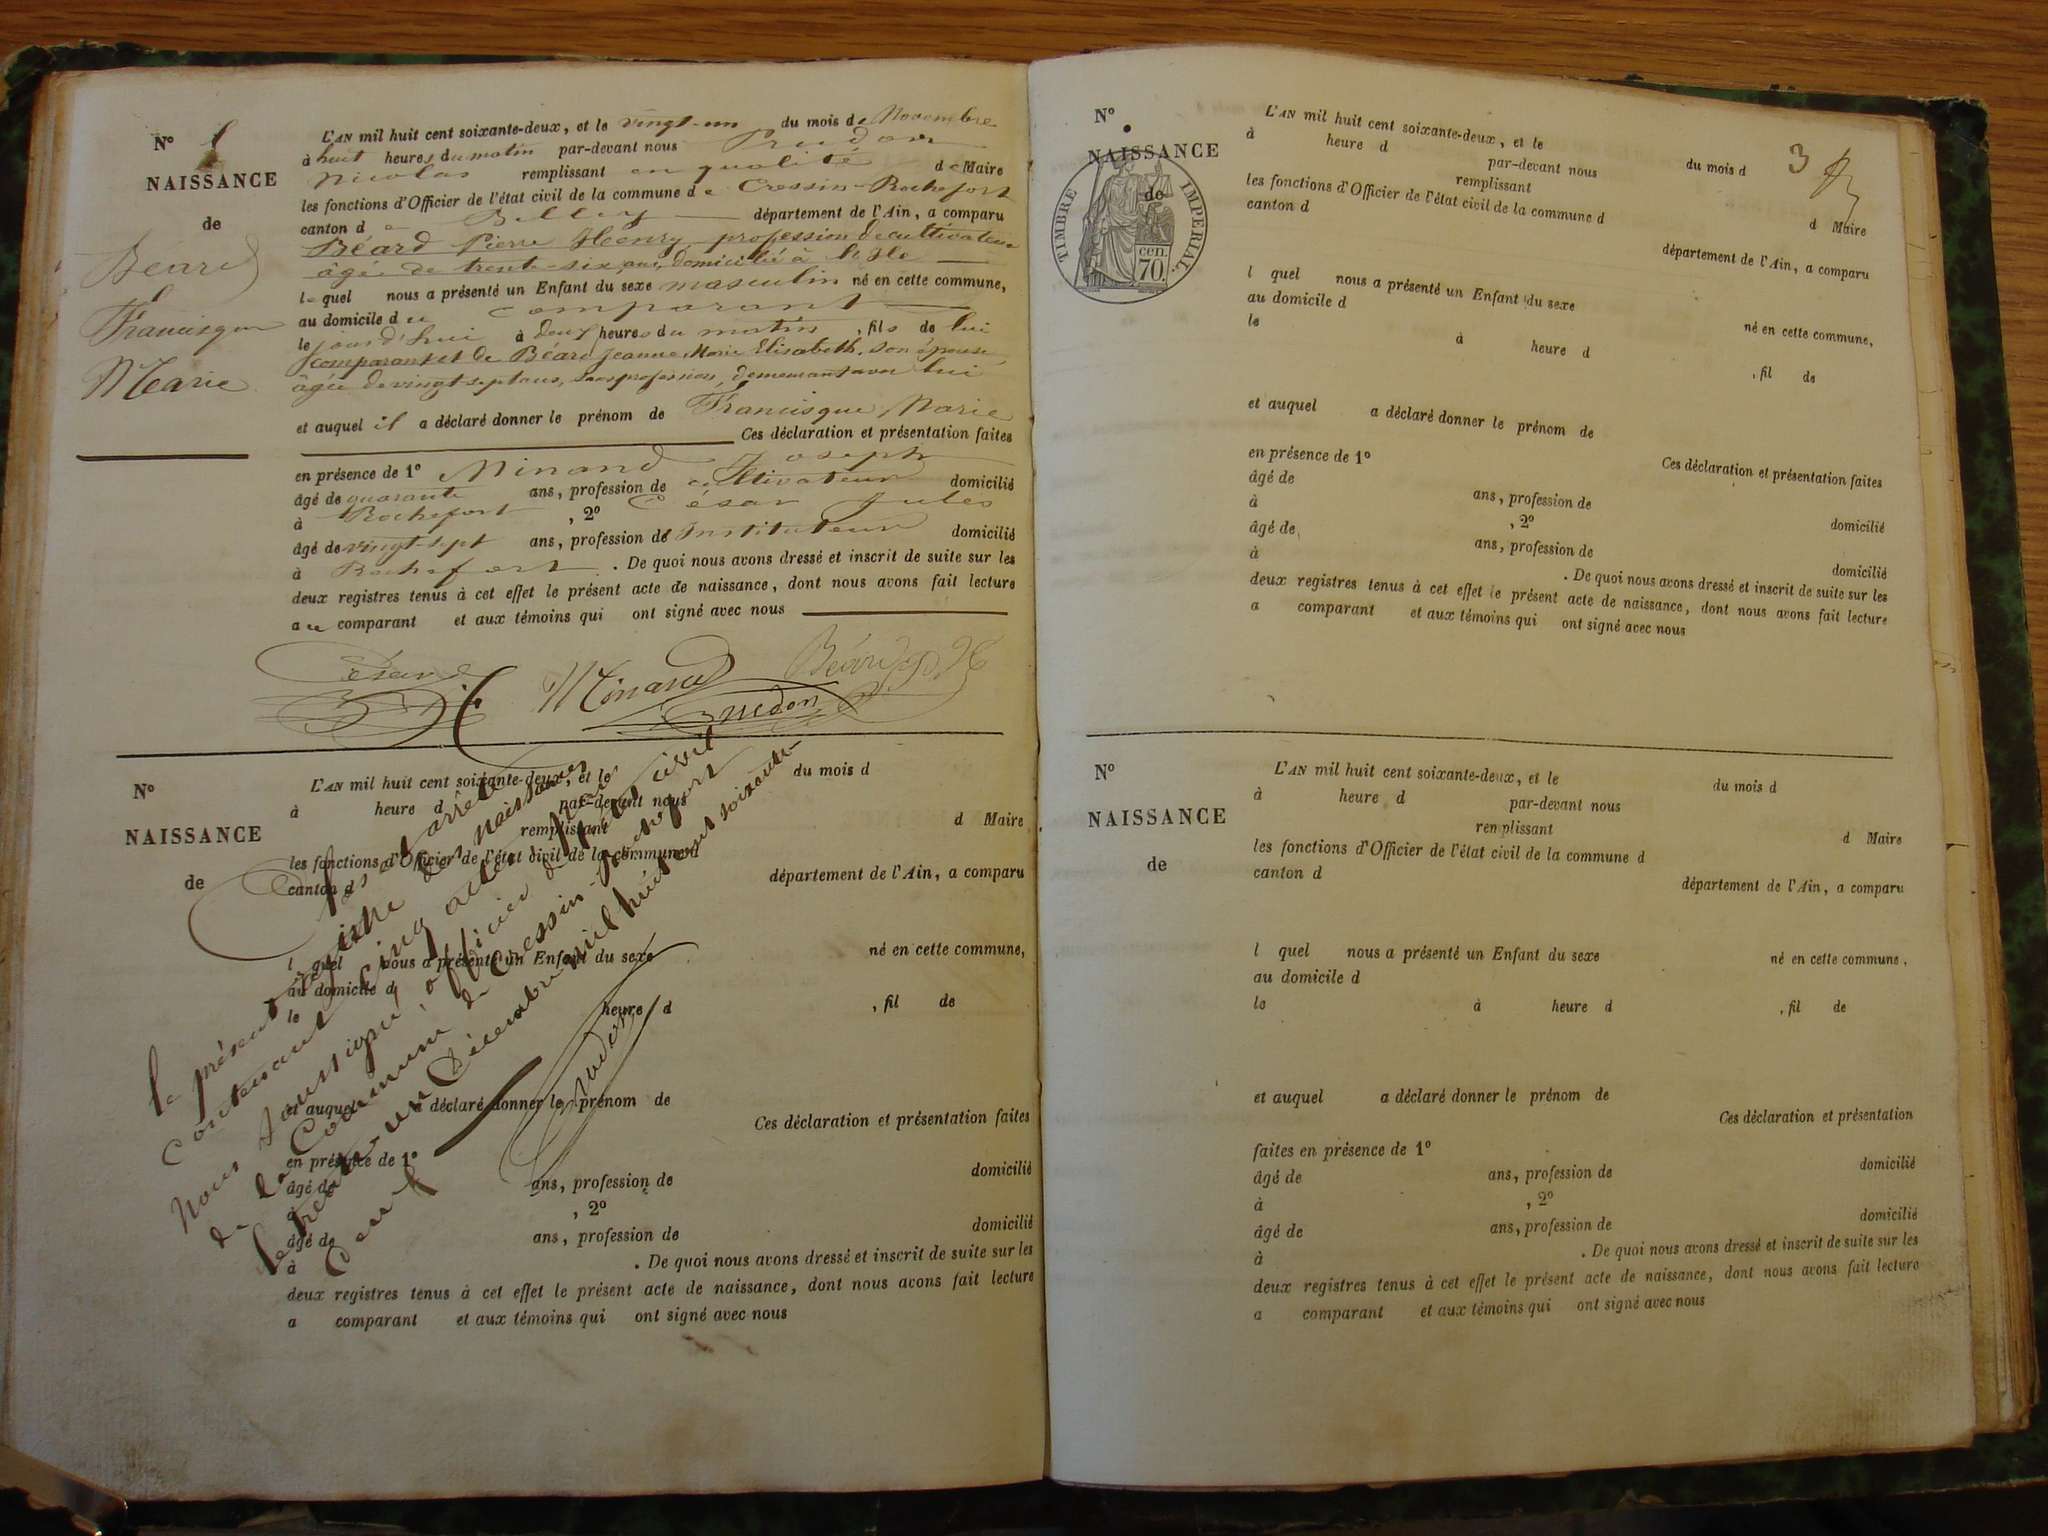 N°
NAISSANCE
de
Béard
Francisque
Marie
L'AN mil huit cent soixante-deux, et le vingt-un du mois de Novembre
à huit heures du matin par-devant nous Prudon
Nicolas remplissant en qualité de Maire
les fonctions d'Officier de l'état civil de la commune de Cressin-Rochefort
canton de Belley département de l'Ain, a comparu
Béard Pierre Henry, profession de cultivateur
âgé de trente-six ans, domicilié à
lequel nous a présenté un Enfant du sexe masculin né en cette commune,
au domicile du comparant
le jourd'hui à deux heures du matin, fils de lui
comparant et de Béard Jeanne Marie Elisabeth, son épouse,
âgée de vingt-sept ans, sans profession, demeurant avec lui
et auquel il a déclaré donner le prénom de Francisque Marie
Ces déclaration et présentation faites
en présence de 1° Minand Joseph
âgé de quarante ans, profession de cultivateur domicilié
à Rochefort, 2° César Jules
âgé de vingt-sept ans, profession de Instituteur domicilié
à Rochefort. De quoi nous avons dressé et inscrit de suite sur les
deux registres tenus à cet effet le présent acte de naissance, dont nous avons fait lecture
au comparant et aux témoins qui ont signé avec nous
César Minand Béard
Prudon
N°
NAISSANCE
de
L'AN mil huit cent soixante-deux, et le du mois d
à heure d par-devant nous
remplissant d Maire
les fonctions d'Officier de l'état civil de la commune d
canton d département de l'Ain, a comparu
l quel nous a présenté un Enfant du sexe né en cette commune,
au domicile d
le heure d , fil de
et auquel a déclaré donner le prénom de
Ces déclaration et présentation faites
en présence de 1°
âgé de ans, profession de domicilié
à , 2°
âgé de ans, profession de domicilié
à . De quoi nous avons dressé et inscrit de suite sur les
deux registres tenus à cet effet le présent acte de naissance, dont nous avons fait lecture
a comparant et aux témoins qui ont signé avec nous
Clos et arrêté
le présent registre des naissances
contenant cinq actes, par
Nous soussigné, officier de l'état civil
de la Commune de Cressin-Rochefort
le trente un Décembre mil huit cent soixante-
deux
Prudon
N°
NAISSANCE
de
TIMBRE IMPERIAL.
cen.
70.
3
L'AN mil huit cent soixante-deux, et le du mois d
à heure d par-devant nous
remplissant d Maire
les fonctions d'Officier de l'état civil de la commune d
canton d département de l'Ain, a comparu
l quel nous a présenté un Enfant du sexe né en cette commune,
au domicile d
le à heure d , fil de
et auquel a déclaré donner le prénom de
Ces déclaration et présentation faites
en présence de 1°
âgé de ans, profession de domicilié
à , 2°
âgé de ans, profession de domicilié
à . De quoi nous avons dressé et inscrit de suite sur les
deux registres tenus à cet effet le présent acte de naissance, dont nous avons fait lecture
a comparant et aux témoins qui ont signé avec nous
N°
NAISSANCE
de
L'AN mil huit cent soixante-deux, et le du mois d
à heure d par-devant nous
remplissant d Maire
les fonctions d'Officier de l'état civil de la commune d
canton d département de l'Ain, a comparu
l quel nous a présenté un Enfant du sexe né en cette commune,
au domicile d
le à heure d , fil de
et auquel a déclaré donner le prénom de
Ces déclaration et présentation
faites en présence de 1°
âgé de ans, profession de domicilié
à , 2°
âgé de ans, profession de domicilié
à . De quoi nous avons dressé et inscrit de suite sur les
deux registres tenus à cet effet le présent acte de naissance, dont nous avons fait lecture
a comparant et aux témoins qui ont signé avec nous